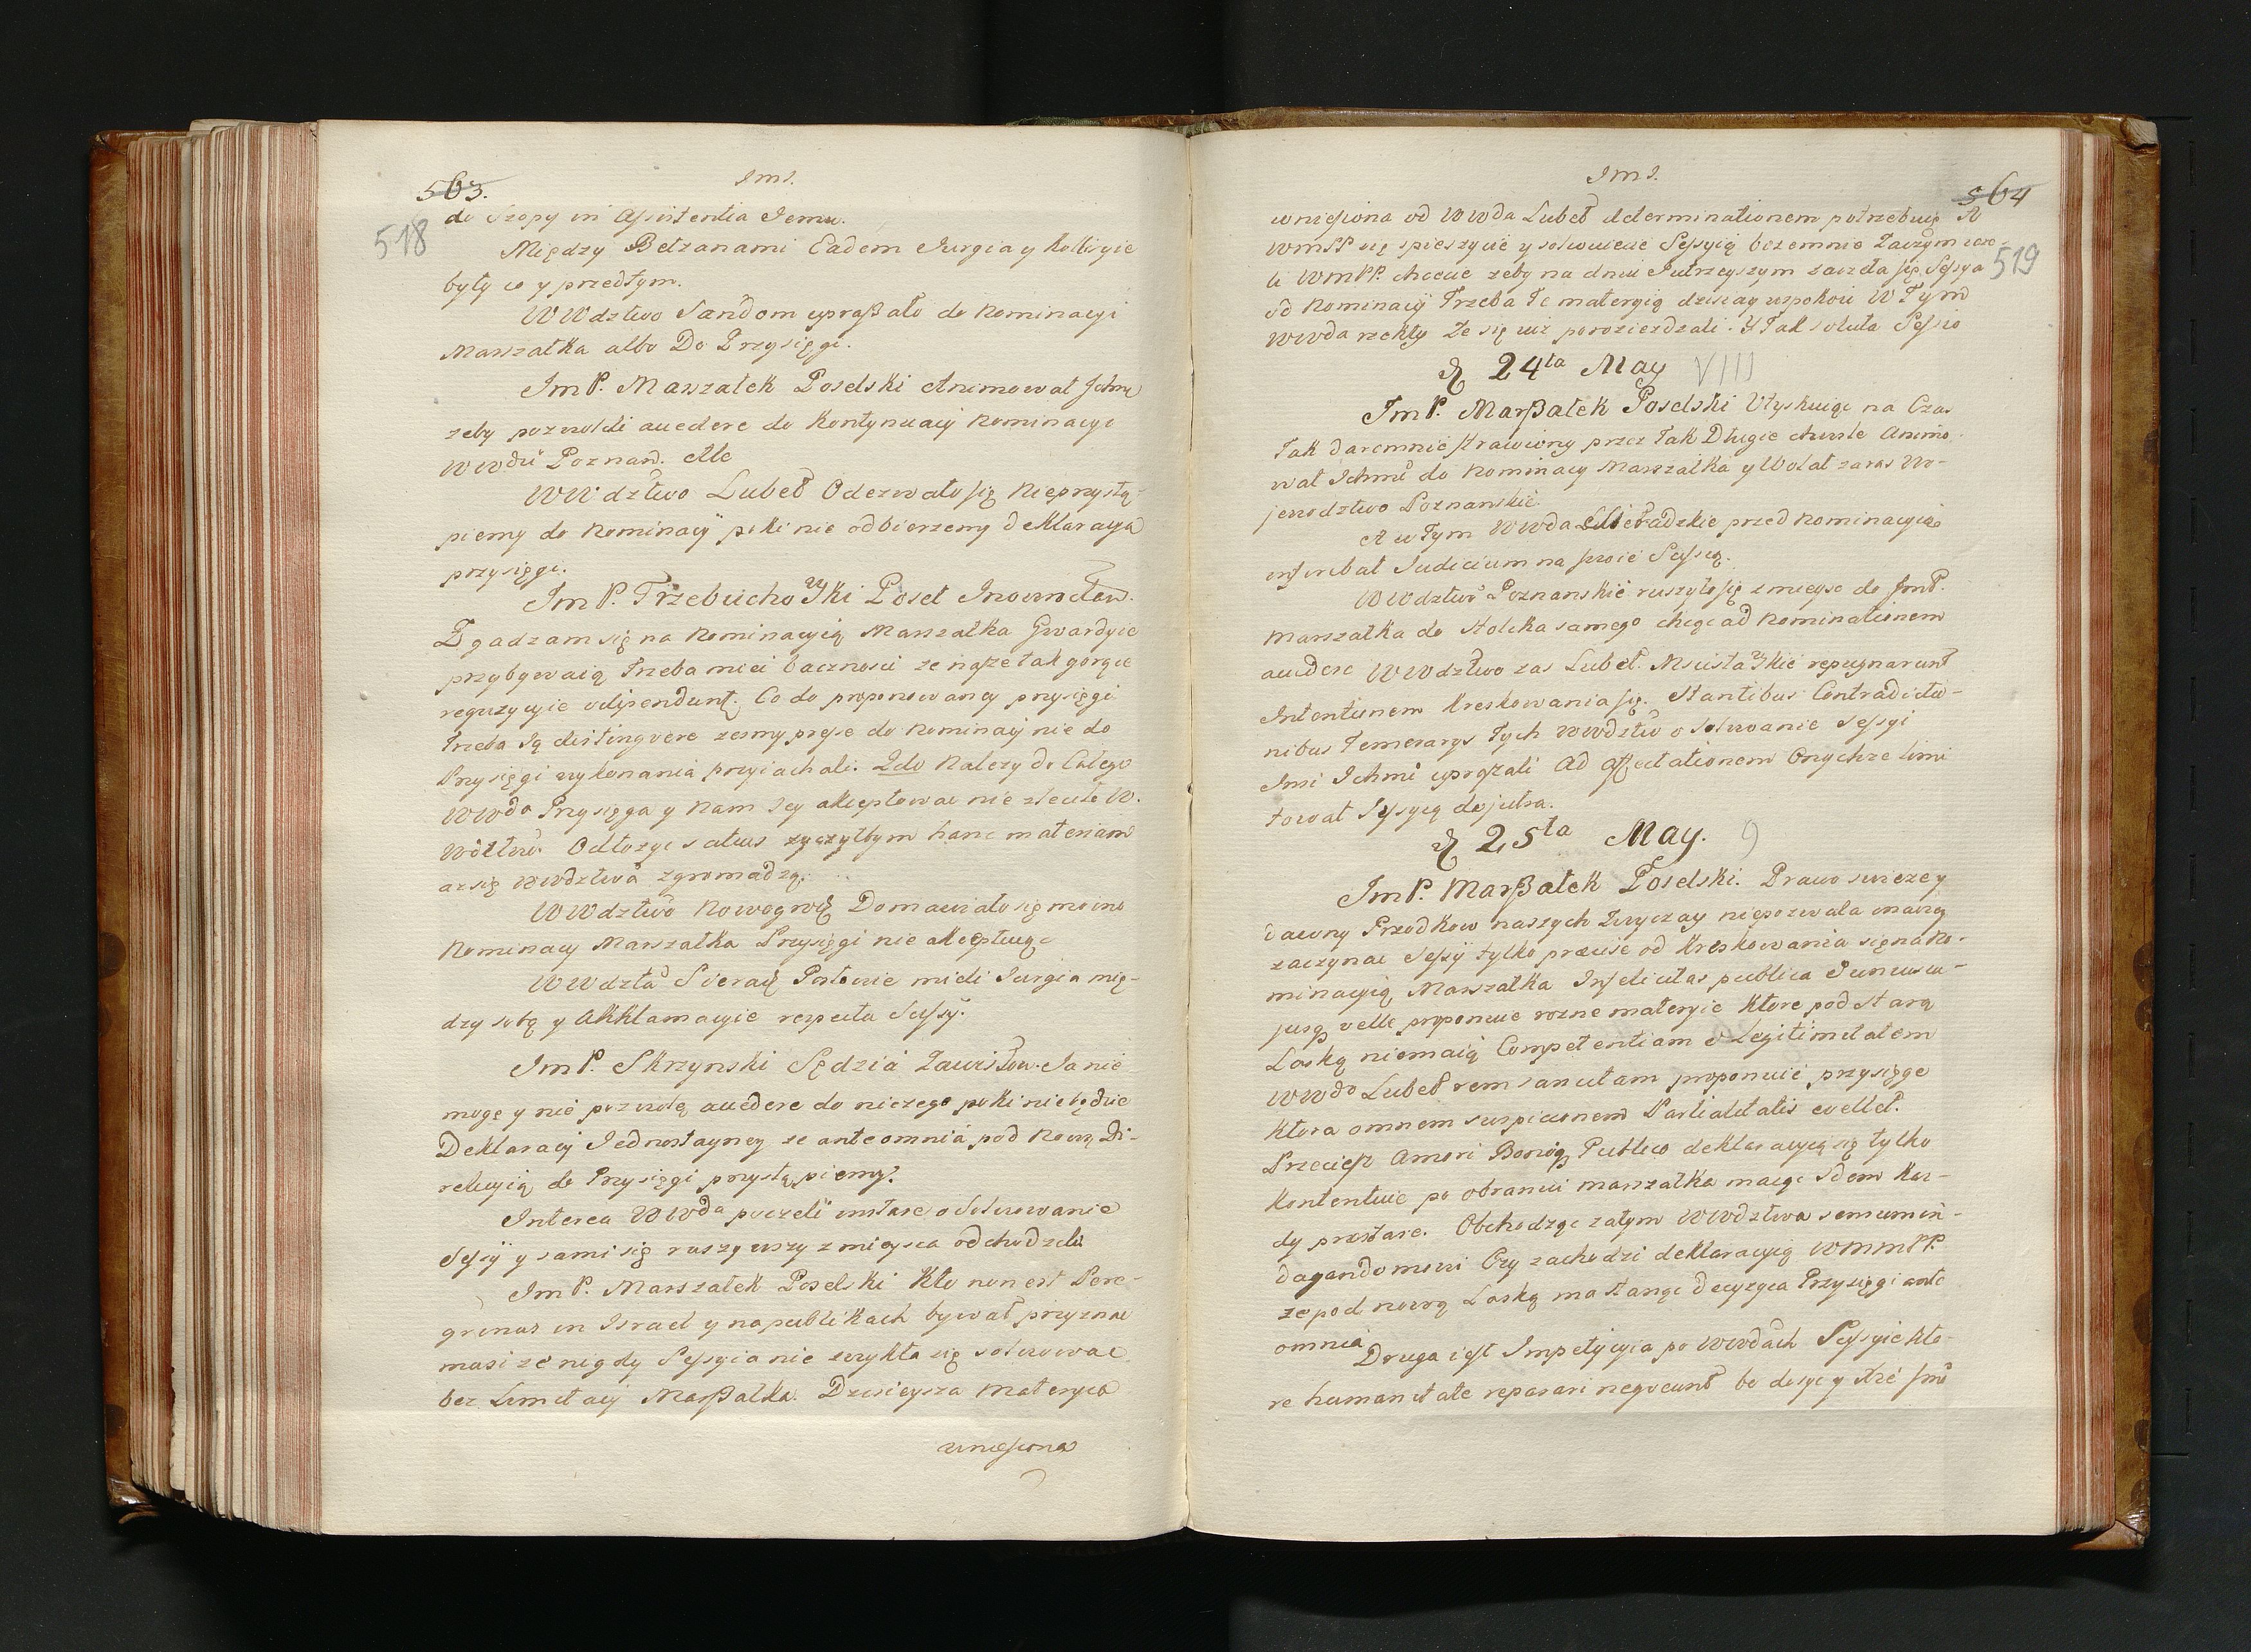 Jmś.
563.
518
do Szopy in Assistentia Jemu.
Między Bełzanami Eadem Jurgia y Kolligie
były co y przedtym.
WWdztwo Sandom upraszało do Nominacyi
Marszałka albo Do Przysięgi.
JmP. Marszałek Poselski Animował Ichm
zeby pozwolili accedere do Kontynuacij Nominacyi
WWdū Poznań. Ale
WWdztwo Lubel Odezwało się Nieprzystą-
piemy do Nominacij poki nie odbierzemy deklaracya
przysięgi.
JmP. Trzebuchowski Poseł Inowrocław.
Zgadzam się na Nominacyią Marszałka Gwardyie
przybywaią Trzeba mieć bacznosci ze nasze tak gorące
reguzycyie vilipendunt. Co do proponowaney przysięgi
Trzeba Ją distingvere zesmy prcse do Nominacij nie do
Przysięgi wykonania przyiachali. 2do Nalezy do Całego
WWda Przysięga y Nam Jey akceptowac nie zleciło W.
Wdztwo. Odłozyc satius zyczyłbym hanc materiam
az się WWdztwa zgromadzą.
WWdztwo Nowogrod Domawiało się mocno
Nominacij Marszałka Przysięgi nie akceptuiąc
WWdztā Sierad Posłowie mieli Jurgia mię-
dzy sobą y Akklamacyie respectu Sessyi.
JmP. Skrzynski Sędzia Zawisłow. Ja nie
mogę y nie pozwolę accedere do niczego poki nie będzie
Deklaracij Jednostayney ze ante omnia pod Nową Di-
rekcyią do Przysięgi przystąpiemy.
Interea WWda poczeli instare o Solwowanie
Sessij y sami się ruszywszy z mieysca odchodzili
JmP. Marszałek Poselski Kto non est Pere-
grinus in Israel y na publikach bywał przyznac
musi ze nigdy Sessyia nie zwykła się solwowac
bez Limitacij Marszałka. Dzisieysza Materyia
wniesiona
Jmś.
564
519
wniesiona od WWda Lubel determinationem potrzebuię A
WmPP się spieszycie y solwuiecie Sessyią bezemnie Zaczym ieze-
li WmPP. chcecie zeby na dniu Jutrzeyszym zaczeła się Sessya
od Nominacij Trzeba Te materyią dzisiay uspokoić W Tym
WWda rzekły Ze się iuż porozieżdzali. Y Tak soluta Sessio
D 24ta May VIII
JmP. Marszałek Poselski Utyskuiąc na Czas
Tak daremnie strawiony przez Tak Długie chwile Animo-
wał Ichmć do Nominacij Marszałka y Wołał zaraz Wo-
jewodztwo Poznanskie.
A w Tym WWda Sieradzkie przed Nominacyią
inscribat Judicium na swoie Sessią.
WWdztwo Poznanskie ruszyło się z mieysc do JmP.
Marszałka do Stolika samego chcąc ad Nominationem
accedere WWdztwo zas Lubel. Mscisławskie repugnarunt
Intentionem Kreskowania się. Stantibus Contradictio-
nibus Temerarys Tych WWdztw o Solwowanie Sessyi
Insi Ichmć upraszali Ad affectationem Onychze limi
tował Sessyią do jutra.
D 25ta May. 9
JmP. Marszałek Poselski. Prawo swieze y
dawny Przodkow naszych Zwyczay niepozwala inaczey
zaczynac Sessij tylko præcise od Kreskowania się na No-
minacyią Marszałka Infelicitas publica
jusq velle proponuie rozne materyie Ktore pod Starą
Laską niemaią Competentiam & Legitimitatem
WWdo Lubel rem sanctam proponuie przysięge
Ktora omnem suspicionem Partialitatis evellet.
Przecież Amori Boniq Publico deklaracyią się tylko
Kontentuie po obraniu marszałka maiąc Idem Kaz-
dy prestare. Obchodząc zatym WWdztwa
dagando mowi Czy zachodzi deklaracyią WMmPP.
ze pod nową Laską ma stanąc Decyzya Przysięgi ante
omnia
Druga iest Impetycyia po WWdach Sessyie kto-
re humanitate reparari neqveunt bo dosyc y